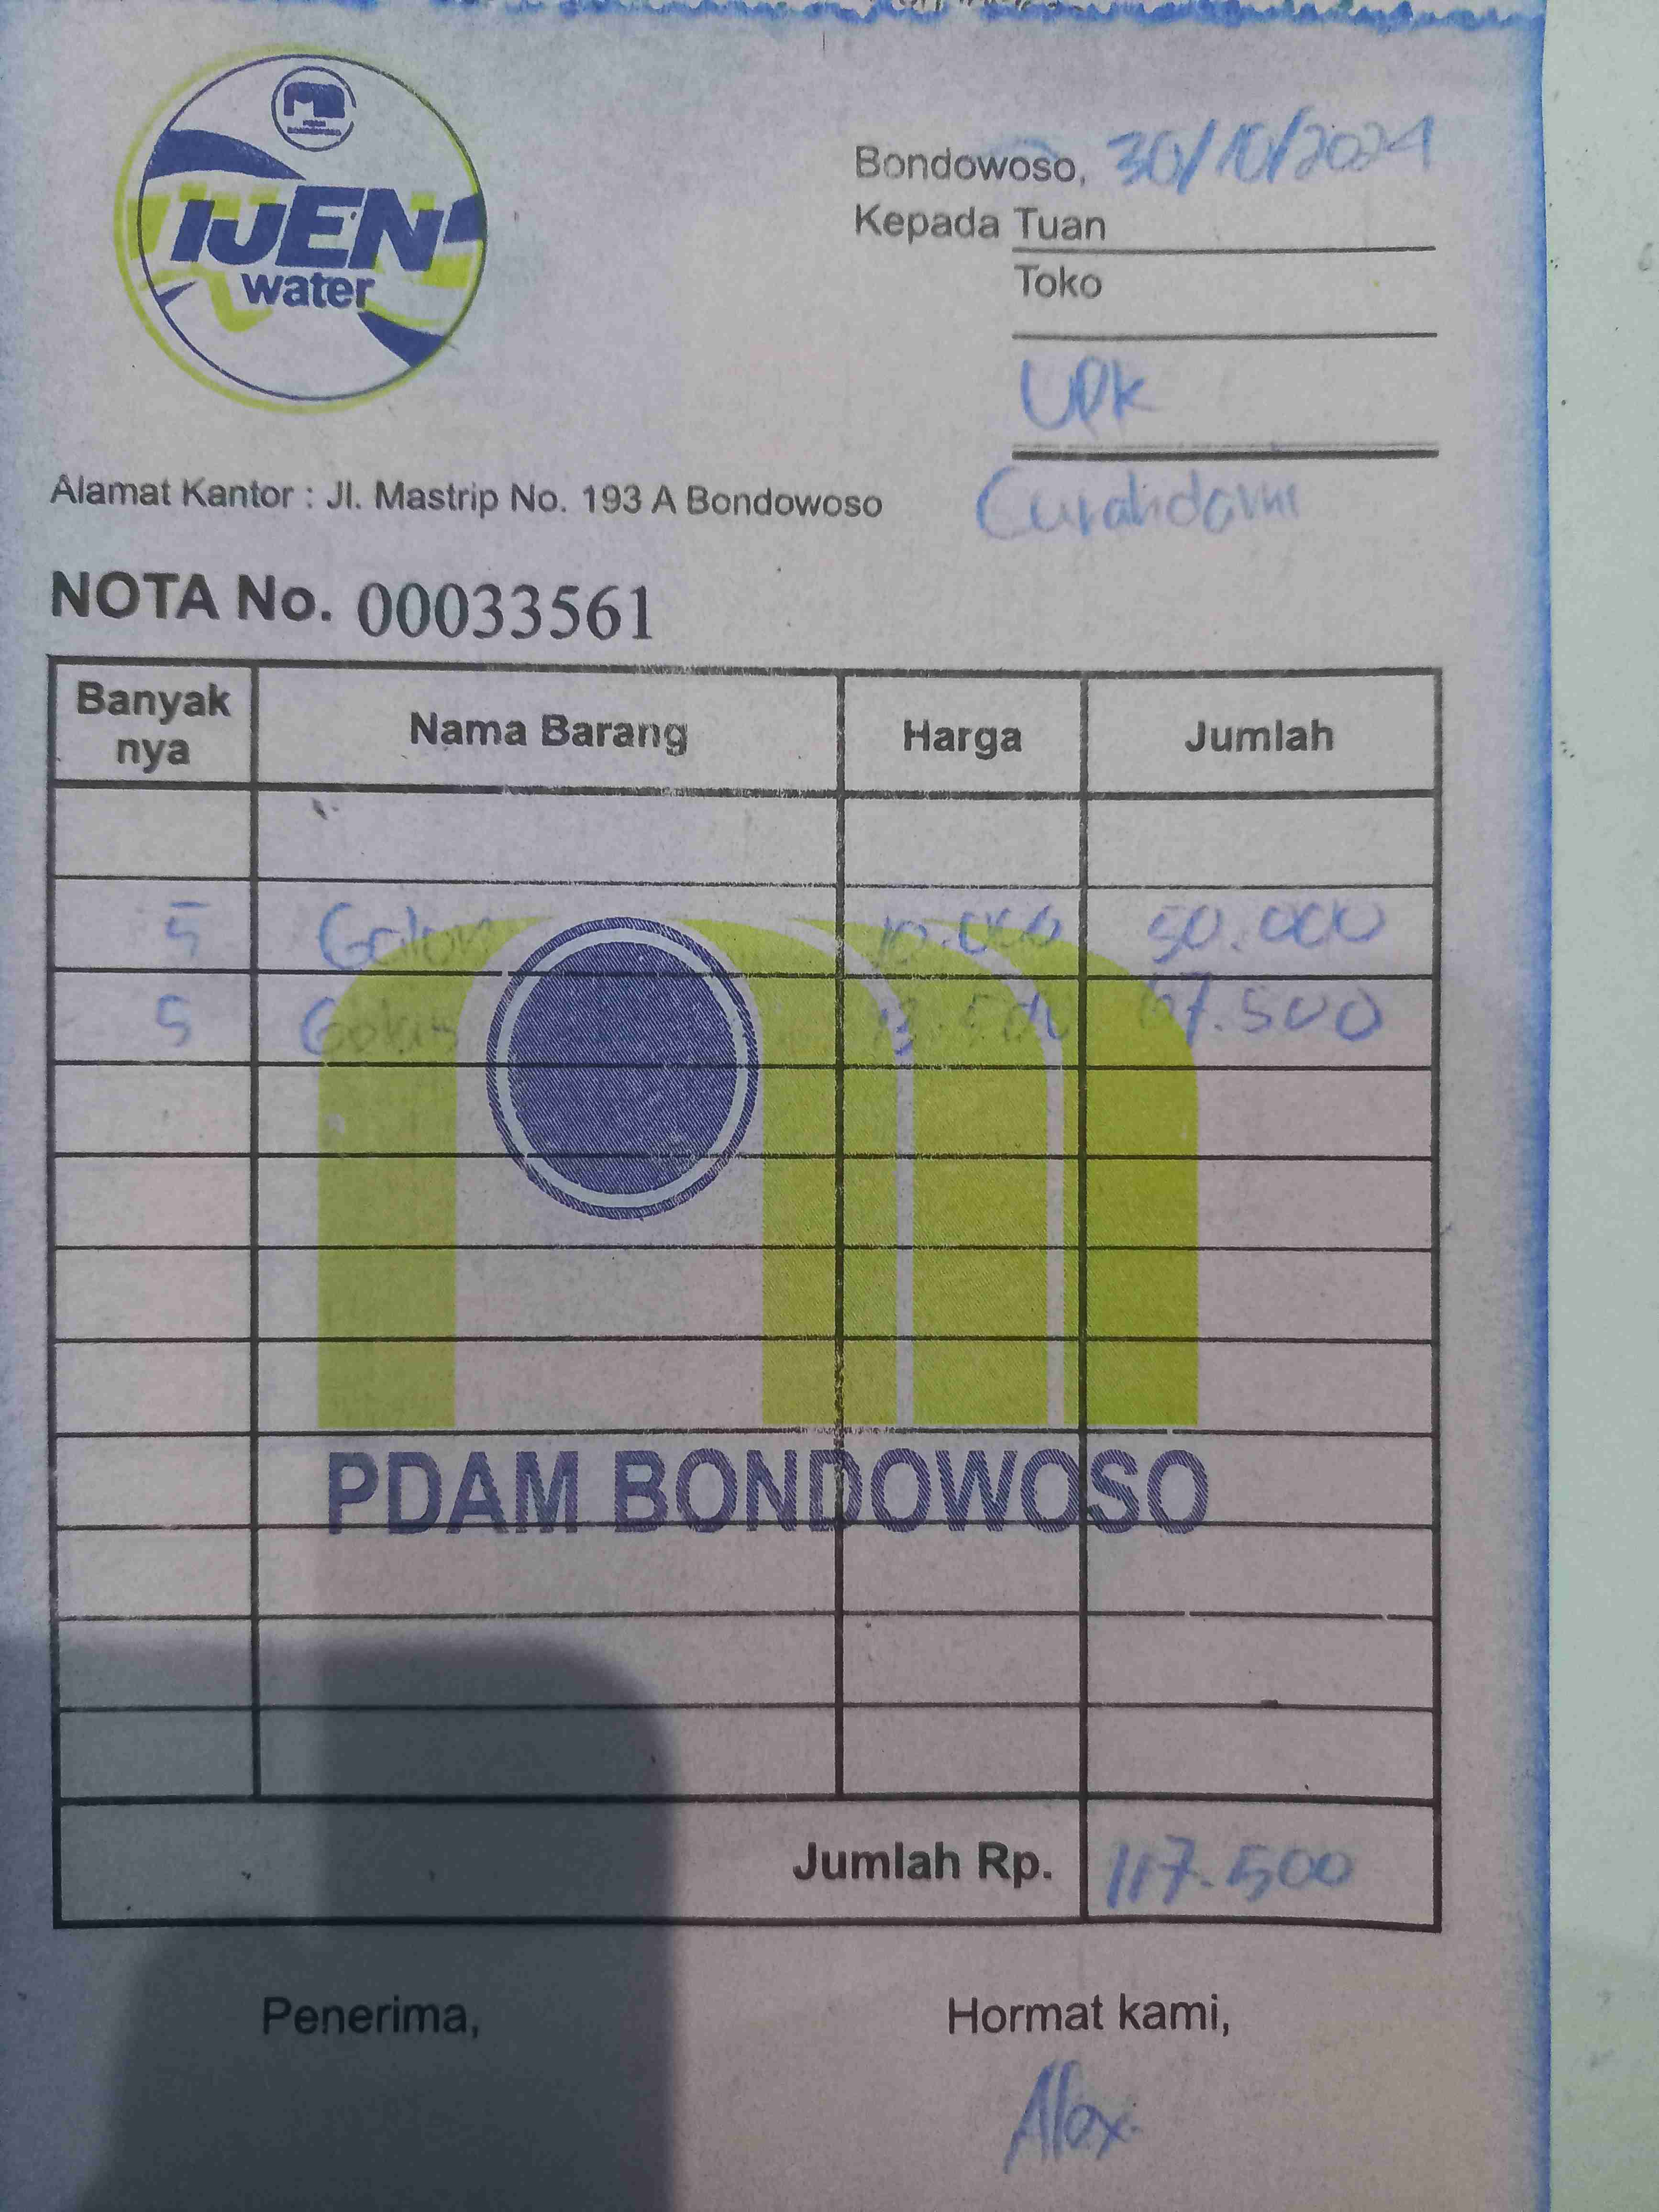 PDAM
BONDOWOSO
IJEN
water
Bondowoso, 30/10/2024
Kepada Tuan
Toko
UPK
Curahdami
Alamat Kantor : Jl. Mastrip No. 193 A Bondowoso
NOTA No. 00033561
Banyak nya Nama Barang Harga Jumlah
5 Galon 10.000 50.000
5 13.500 67.500
PDAM BONDOWOSO
Jumlah Rp. 117.500
Penerima, Hormat kami,
Alex